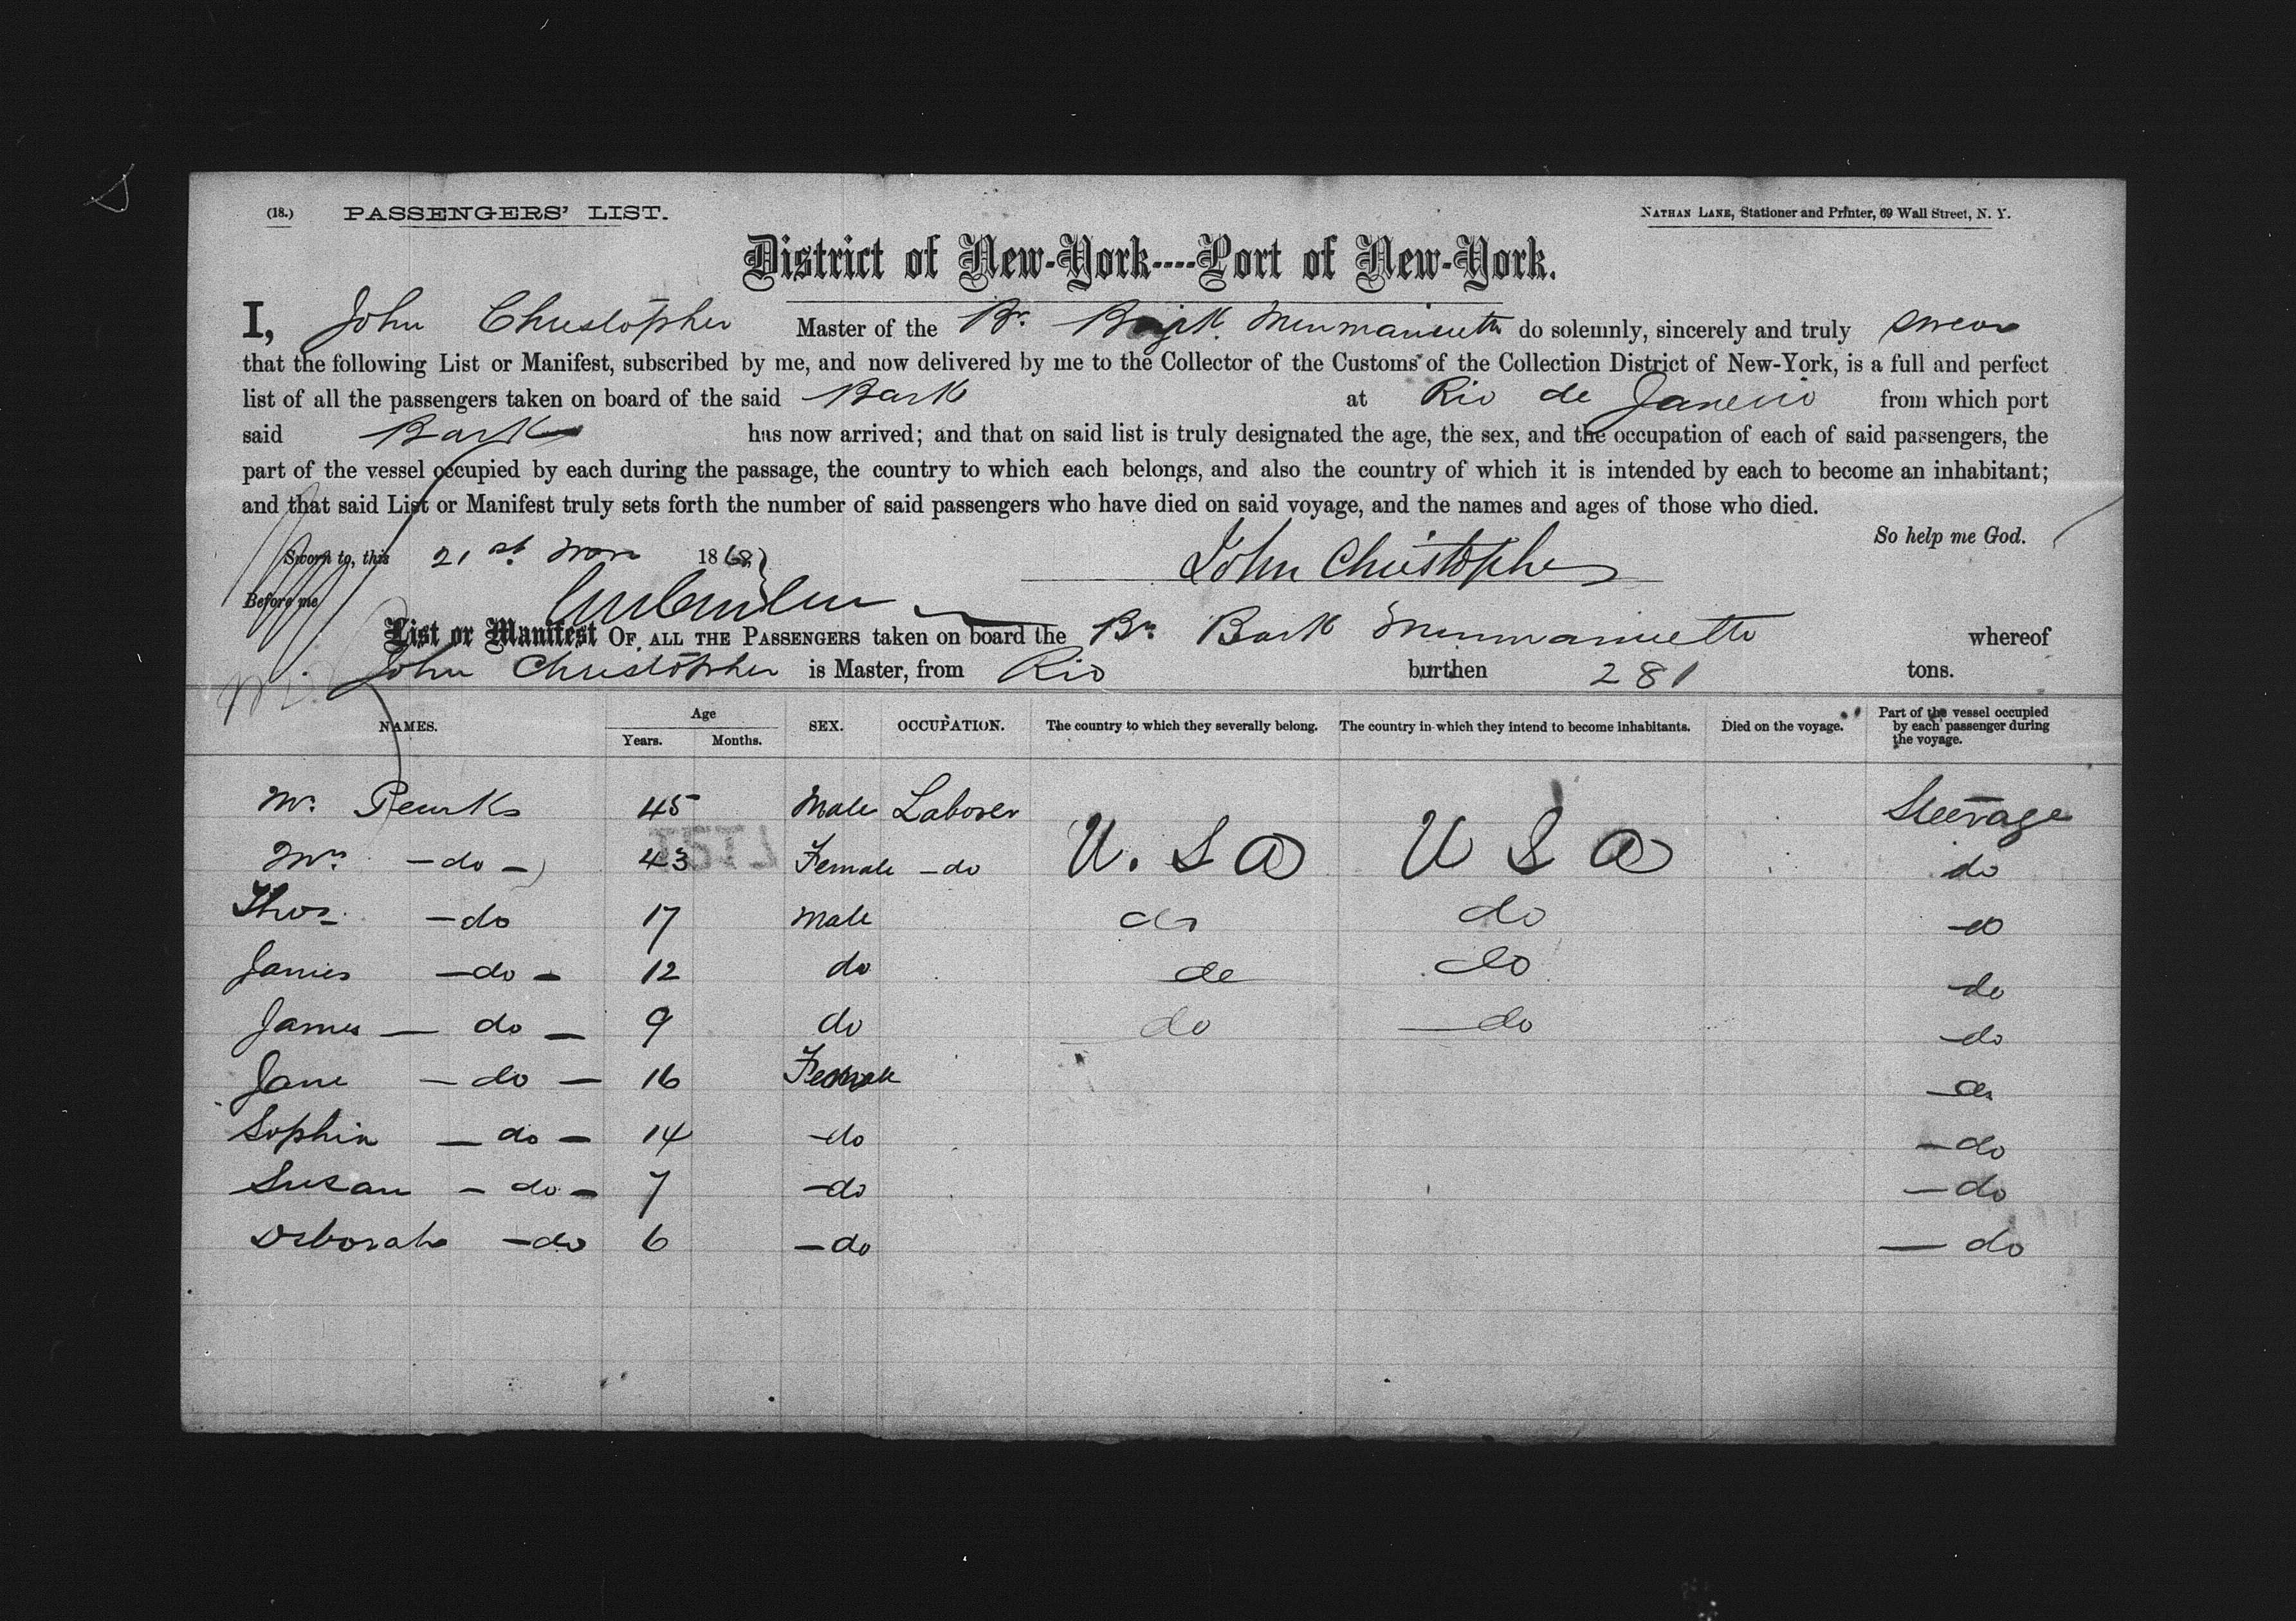 (18.) PASSENGERS' LIST. NATHAN LANE, Stationer and Printer, 69 Wall Street, N. Y.
District of New-York----Port of New-York.
I, John Christopher Master of the Br. Bark do solemnly, sincerely and truly swear
that the following List or Manifest, subscribed by me, and now delivered by me to the Collector of the Customs of the Collection District of New-York, is a full and perfect
list of all the passengers taken on board of the said Bark at Rio de Janeiro from which port
said Bark has now arrived; and that on said list is truly designated the age, the sex, and the occupation of each of said passengers, the
part of the vessel occupied by each during the passage, the country to which each belongs, and also the country of which it is intended by each to become an inhabitant;
and that said List or Manifest truly sets forth the number of said passengers who have died on said voyage, and the names and ages of those who died.
So help me God.
Sworn to, this 21st 1868 John Christopher
Before me
List or Manifest OF ALL THE PASSENGERS taken on board the Br. Bark whereof
John Christopher is Master, from Rio burthen 281 tons.
NAMES. Age Years. Months. SEX. OCCUPATION. The country to which they severally belong. The country in which they intend to become inhabitants. Died on the voyage. Part of the vessel occupied by each passenger during the voyage.
Mr. 45 Male Laborer U. S A U S A Steerage
Mrs - do - 43 Female - do do
Thos. - do 17 Male do do do
James - do - 12 do do do do
James - do - 9 do do do do
Jane - do - 16 Female do
Sophia - do - 14 - do - do
Susan - do - 7 - do - do
Deborah - do 6 - do - do